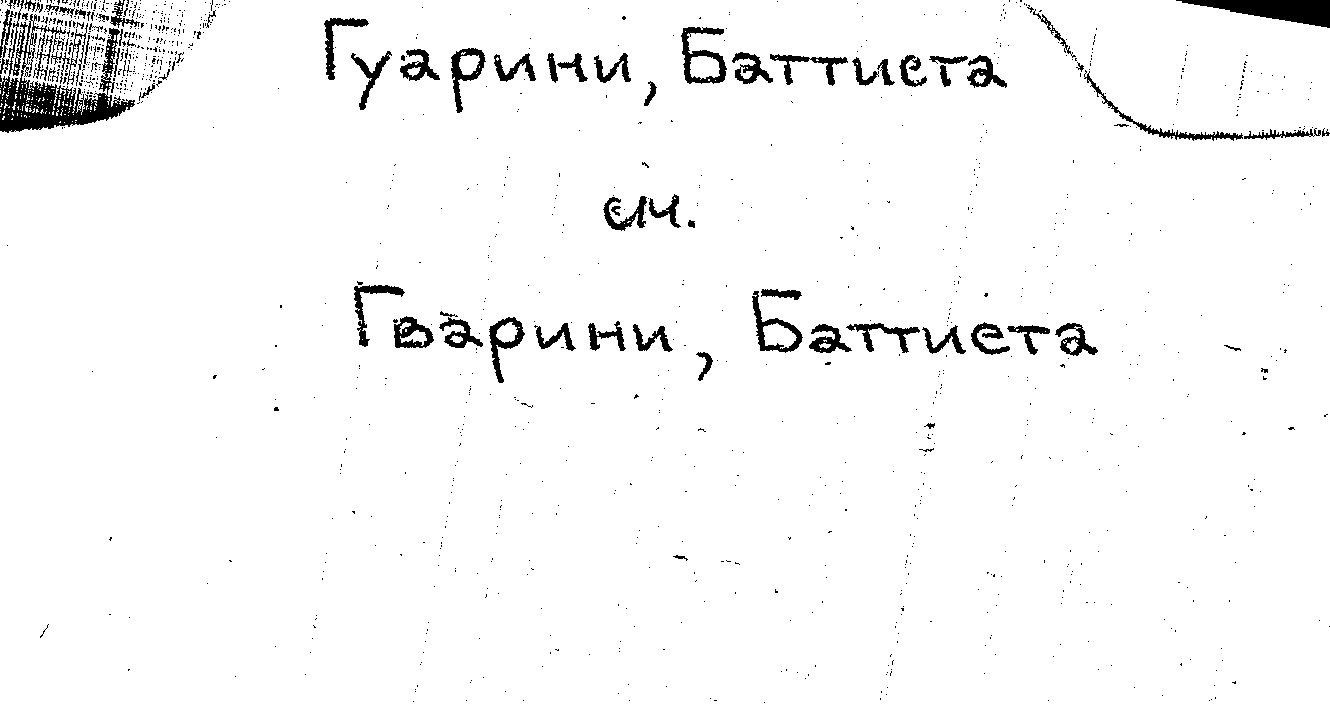 Гуарини, Баттиста
см.
Гварини, Баттиста